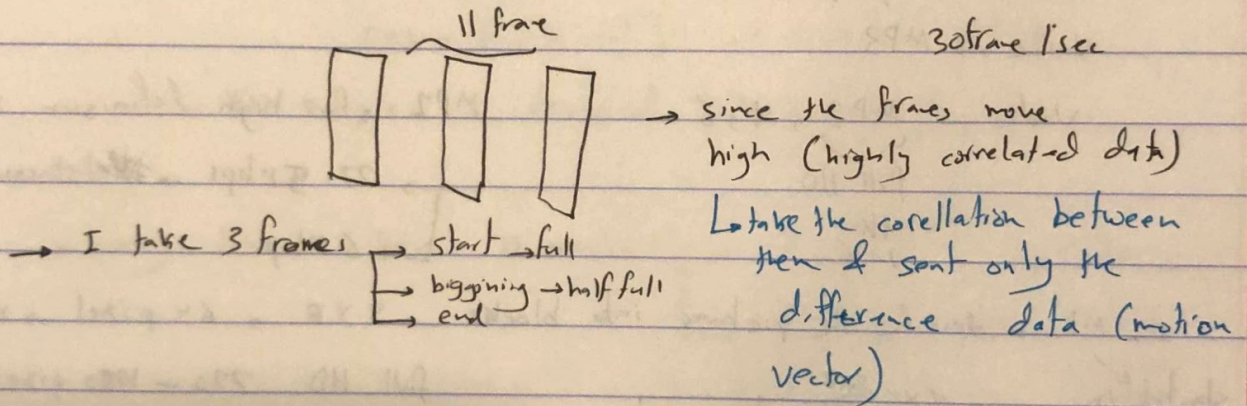 11 frame
30frame / sec
→ since the frames move
high (highly correlated data)
↳ take the corellation between
them & sent only the
difference data (motion
vector)
→ I take 3 frames → start → full
→ biggining → half full
→ end